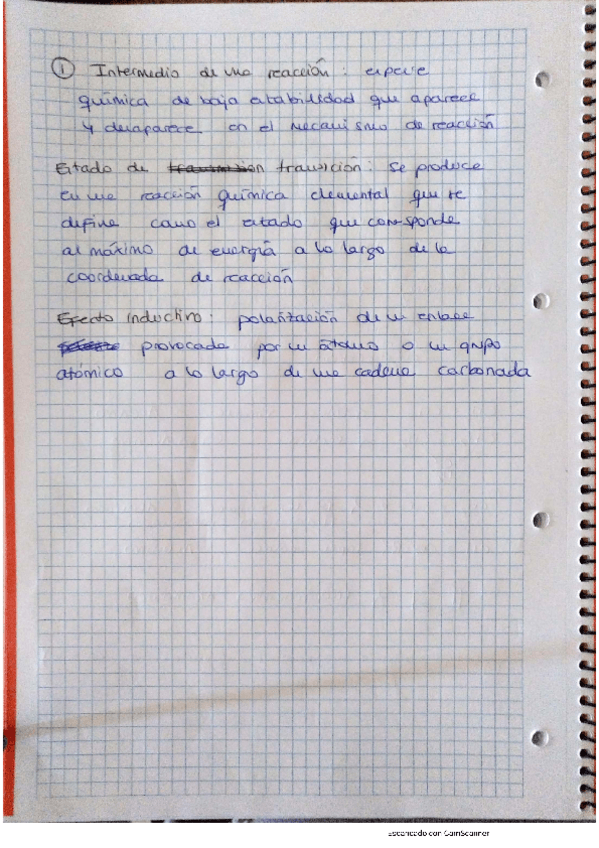 ① Intermedio de una reacción: especie
química de baja estabilidad que aparece
y desaparece en el mecanismo de reacción
Estado de transmision transición: se produce
en una reacción química elemental que se
define como el estado que corresponde
al máximo de energía a lo largo de la
coordenada de reacción
Efecto inductivo: polarización de un enlace
provocada por un átomo o un grupo
atómico a lo largo de una cadena carbonada
Escaneado con CamScanner